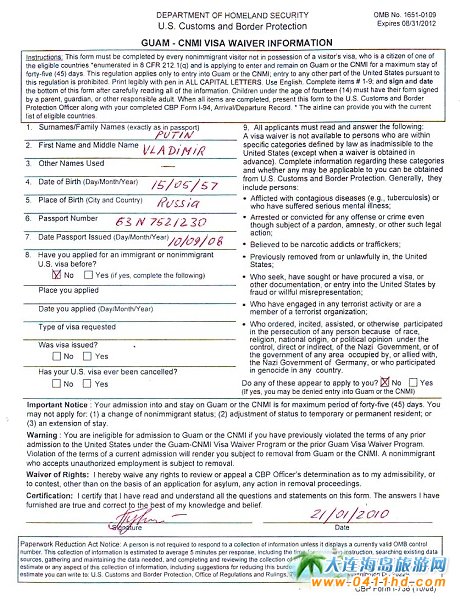 DEPARTMENT OF HOMELAND SECURITY
U.S. Customs and Border Protection
OMB No. 1651-0109
Expires 08/31/2012
GUAM - CNMI VISA WAIVER INFORMATION
Instructions: This form must be completed by every nonimmigrant visitor not in possession of a visitor's visa, who is a citizen of one of
the eligible countries *enumerated in 8 CFR 212.1(q) and is applying to enter and remain on Guam or the CNMI for a maximum stay of
forty-five (45) days. This regulation applies only to entry into Guam or the CNMI; entry to any other part of the United States pursuant to
this regulation is prohibited. Print legibly with pen in ALL CAPITAL LETTERS. Use English. Complete items # 1-9; and sign and date
the bottom of this form after carefully reading all of the information. Children under the age of fourteen (14) must have their form signed
by a parent, guardian, or other responsible adult. When all items are completed, present this form to the U.S. Customs and Border
Protection Officer along with your completed CBP Form I-94, Arrival/Departure Record. * The airline can provide you with the current
list of eligible countries.
1. Surnames/Family Names (exactly as in passport)
PUTIN
2. First Name and Middle Name
VLADIMIR
3. Other Names Used
—
4. Date of Birth (Day/Month/Year) 15/05/57
5. Place of Birth (City and Country)
RUSSIA
6. Passport Number
63 N 7521230
7. Date Passport Issued (Day/Month/Year)
10/09/08
8. Have you applied for an immigrant or nonimmigrant
U.S. visa before?
No Yes (if yes, complete the following)
Place you applied
Date you applied (Day/Month/Year)
Type of visa requested
Was visa issued?
No Yes
Has your U.S. visa ever been cancelled?
No Yes
9. All applicants must read and answer the following:
A visa waiver is not available to persons who are within
specific categories defined by law as inadmissible to the
United States (except when a waiver is obtained in
advance). Complete information regarding these categories
and whether any may be applicable to you can be obtained
from U.S. Customs and Border Protection. Generally, they
include persons:
• Afflicted with contagious diseases (e.g., tuberculosis) or
who have suffered serious mental illness;
• Arrested or convicted for any offense or crime even
though subject of a pardon, amnesty, or other such legal
action;
• Believed to be narcotic addicts or traffickers;
• Previously removed from or unlawfully in, the United
States;
• Who seek, have sought or have procured a visa, or
other documentation, or entry into the United States by
fraud or willful misrepresentation;
• Who have engaged in any terrorist activity or are a
member of a terrorist organization;
• Who ordered, incited, assisted, or otherwise participated
in the persecution of any person because of race,
religion, national origin or political opinion under the
control, direct or indirect, of the Nazi Government, or of
the government of any area occupied by, or allied with,
the Nazi Government of Germany, or who participated
in genocide in any country.
Do any of these appear to apply to you? No Yes
(If yes, you may be denied entry into Guam or the CNMI)
Important Notice : Your admission into and stay on Guam or the CNMI is for maximum period of forty-five (45) days. You
may not apply for: (1) a change of nonimmigrant status; (2) adjustment of status to temporary or permanent resident; or
(3) an extension of stay.
Warning : You are ineligible for admission to Guam or the CNMI if you have previously violated the terms of any prior
admission to the United States under the Guam-CNMI Visa Waiver Program or the prior Guam Visa Waiver Program.
Violation of the terms of a current admission will render you subject to removal from Guam or the CNMI. A nonimmigrant
who accepts unauthorized employment is subject to removal.
Waiver of Rights: I hereby waive any rights to review or appeal a CBP Officer's determination as to my admissibility, or
to contest, other than on the basis of an application for asylum, any action in removal proceedings.
Certification: I certify that I have read and understand all the questions and statements on this form. The answers I have
furnished are true and correct to the best of my knowledge and belief.
21/01/2010
Signature
Date
Paperwork Reduction Act Notice: A person is not required to respond to a collection of information unless it displays a currently valid OMB control
number. This collection of information is estimated to average 5 minutes per response, including the time for reviewing instruction, searching existing data
sources, gathering and maintaining the data needed, and completing and reviewing the collection of
estimate or any aspect of this collection of information, including suggestions for reducing this
estimate you can write to: U.S. Customs and Border Protection, Office of Regulations and Rulings,
CBP Form I-736 (10/08)
大连海岛旅游网
www.0411hd.com